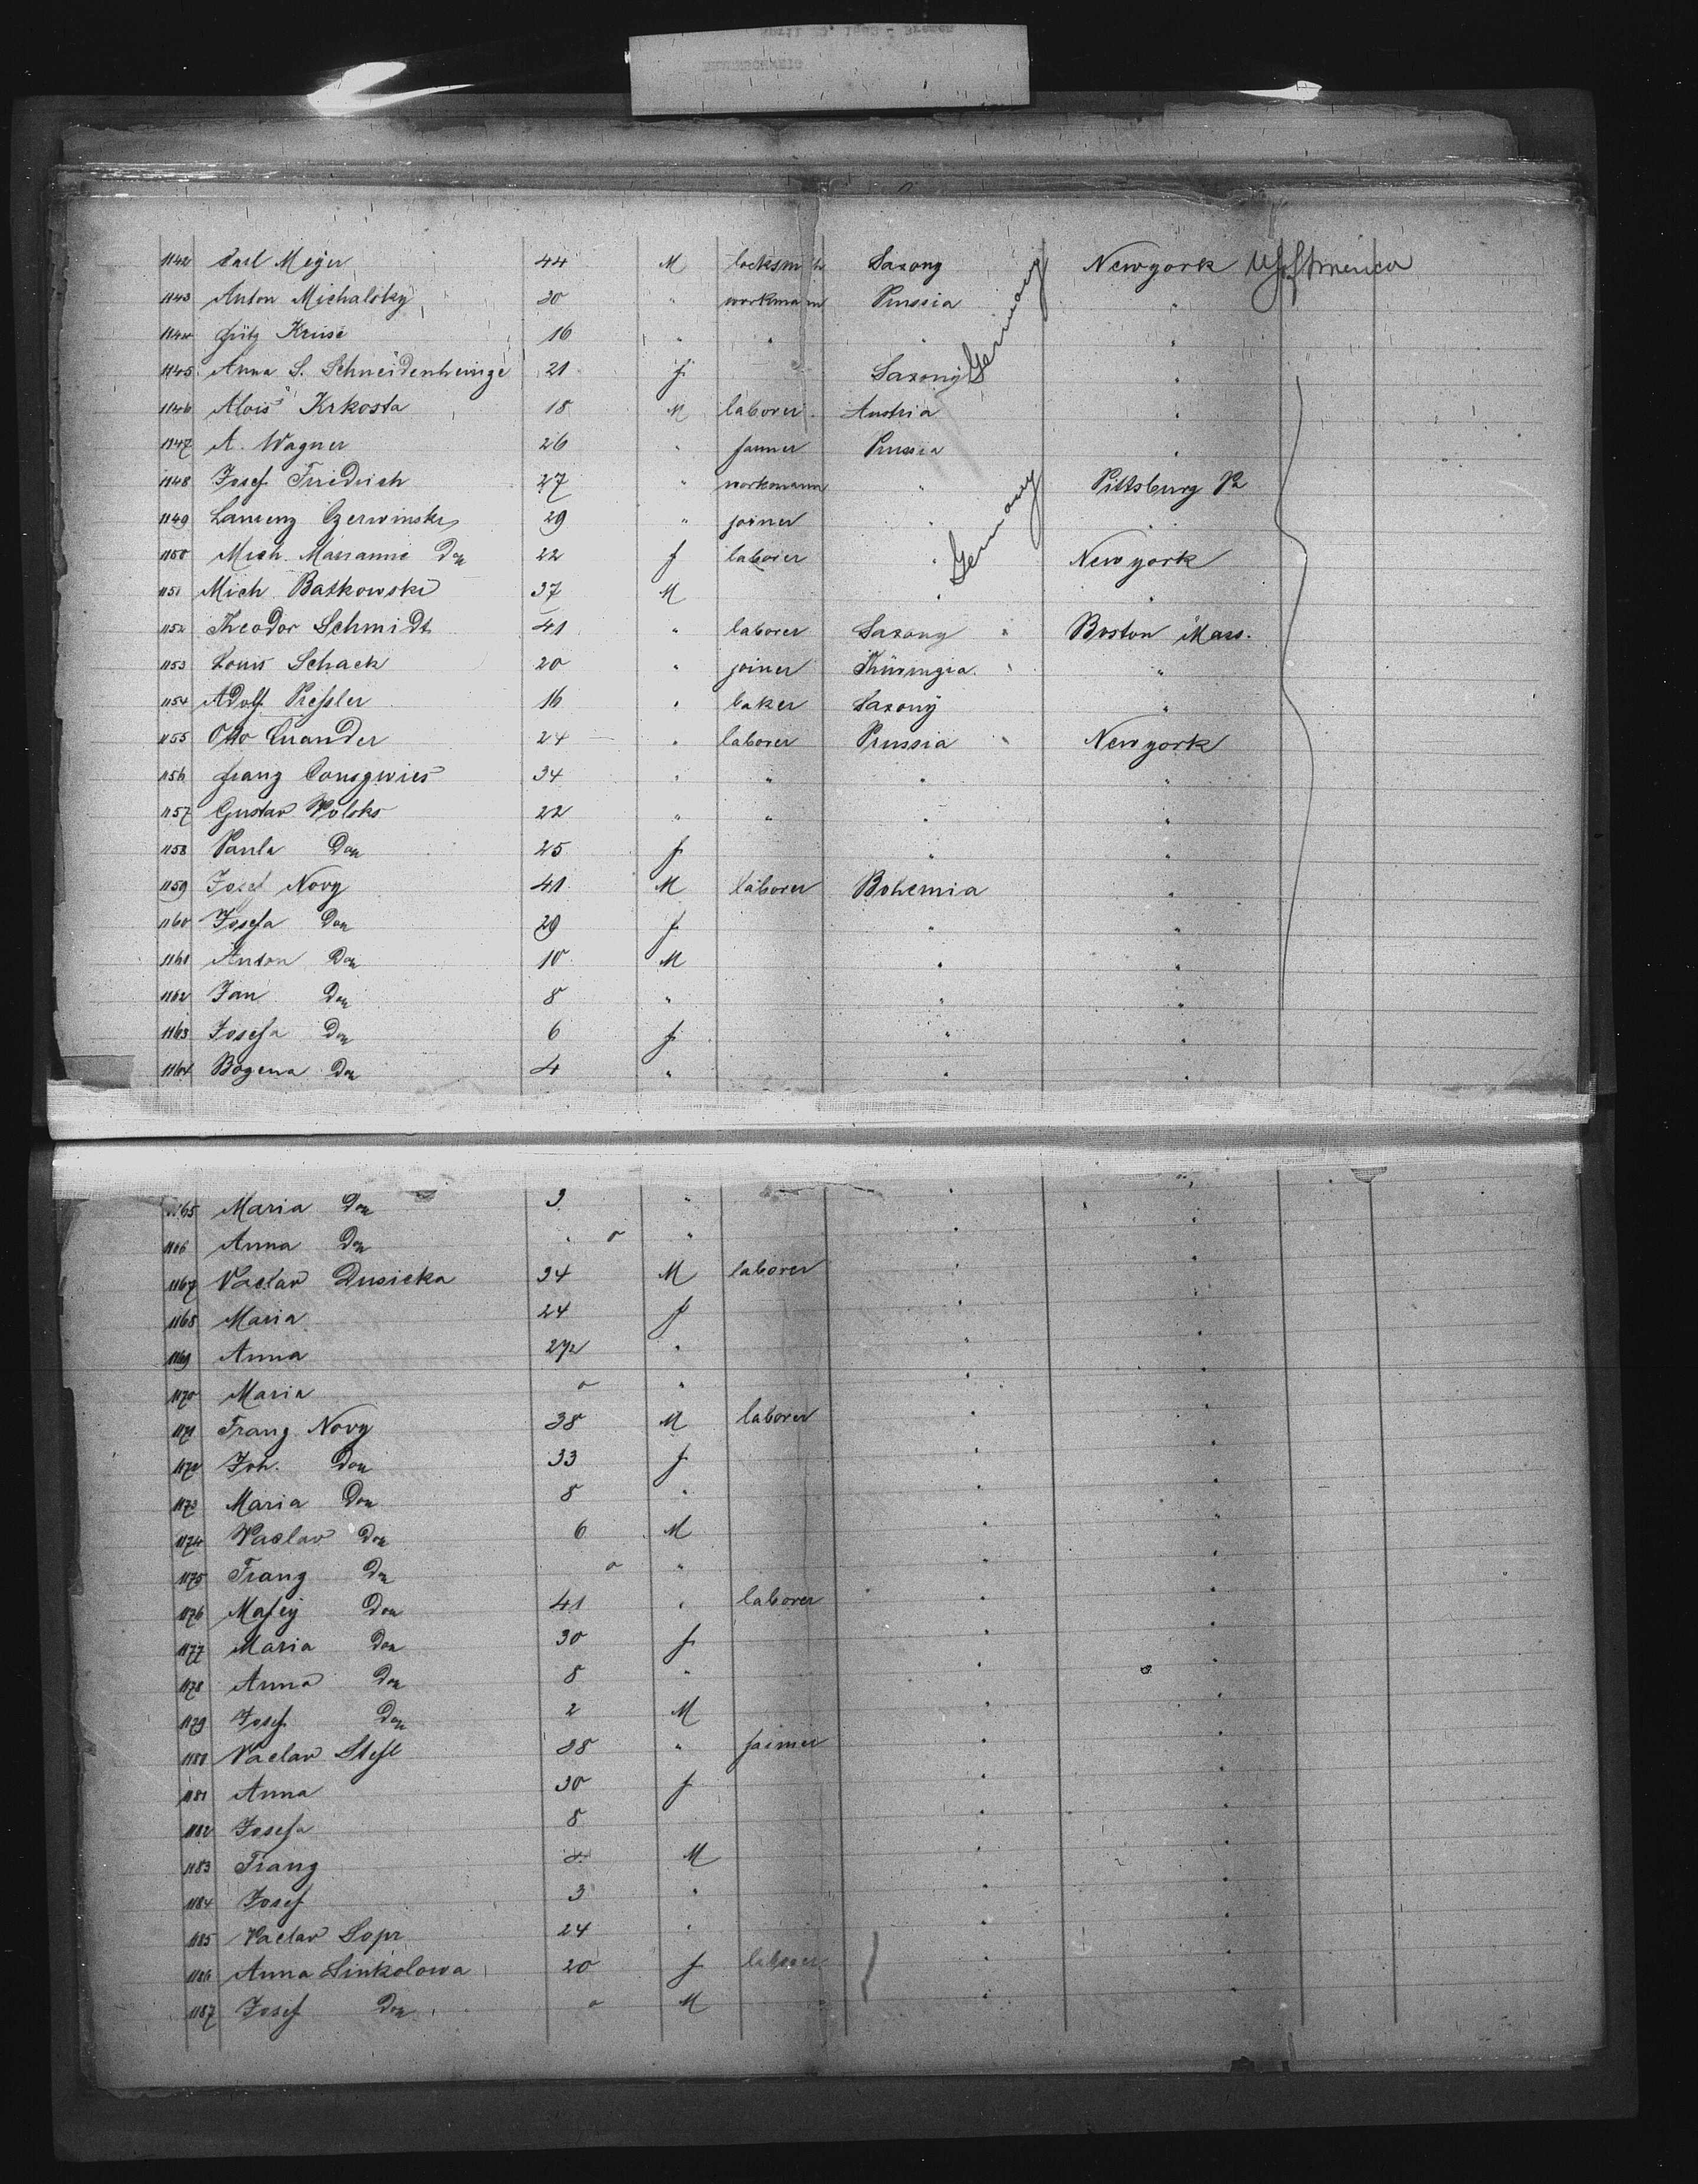 1142 Carl Meyer 44 M locksmith Saxony Newyork U S of America
1143 Anton Michalsky 30 " workmann Prussia "
1144 Fritz Kruse 16 " " " "
Germany
1145 Anna S. Schneidenheinze 21 f Saxony "
1146 Alois Krkosta 18 M laborer Austria "
1147 A. Wagner 26 " farmer Prussia "
1148 Josef Friedrich 27 " workmann " Pittsburg Pa
1149 Laurenz Czerwinski 29 " joiner " "
Germany
1150 Mich. Marianne Do 22 f laborer " Newyork
1151 Mich Batkowski 37 M " "
1152 Theodor Schmidt 41 " laborer Saxony " Boston Mass.
1153 Louis Schack 20 " joiner Thüringia " "
1154 Adolf Pressler 16 " baker Saxony "
1155 Otto Quander 24 " laborer Prussia " Newyork
1156 Franz 34 " " " "
1157 Gustav 22 " " " "
1158 Paula Do 25 f " "
1159 Josef Novy 41 M laborer Bohemia "
1160 Josefa Do 29 f " "
1161 Anton Do 10 M " "
1162 Jan Do 8 " " "
1163 Josefa Do 6 f " "
1164 Bogena Do 4 " " "
1165 Maria Do 3 " " "
1166 Anna Do 0 " " "
1167 Vaclav Dusicka 34 M laborer " "
1168 Maria 24 f " "
1169 Anna " " "
1170 Maria 0 " " "
1171 Franz Novy 38 M laborer " "
1172 Joh. Do 33 f " "
1173 Maria Do 8 " " "
1174 Vaclav Do 6 M " "
1175 Franz Do 0 " " "
1176 Do 41 " laborer " "
1177 Maria Do 30 f " "
1178 Anna Do 8 " " "
1179 Josef Do 2 M " "
1180 Vaclav Stefl 38 " farmer " "
1181 Anna 30 f " "
1182 Josefa 8 " "
1183 Franz M " "
1184 Josef 3 " " "
1185 Vaclav Sopr 24 " " "
1186 Anna Sinkolowa 20 f laborer " "
1187 Josef Do 0 M " "